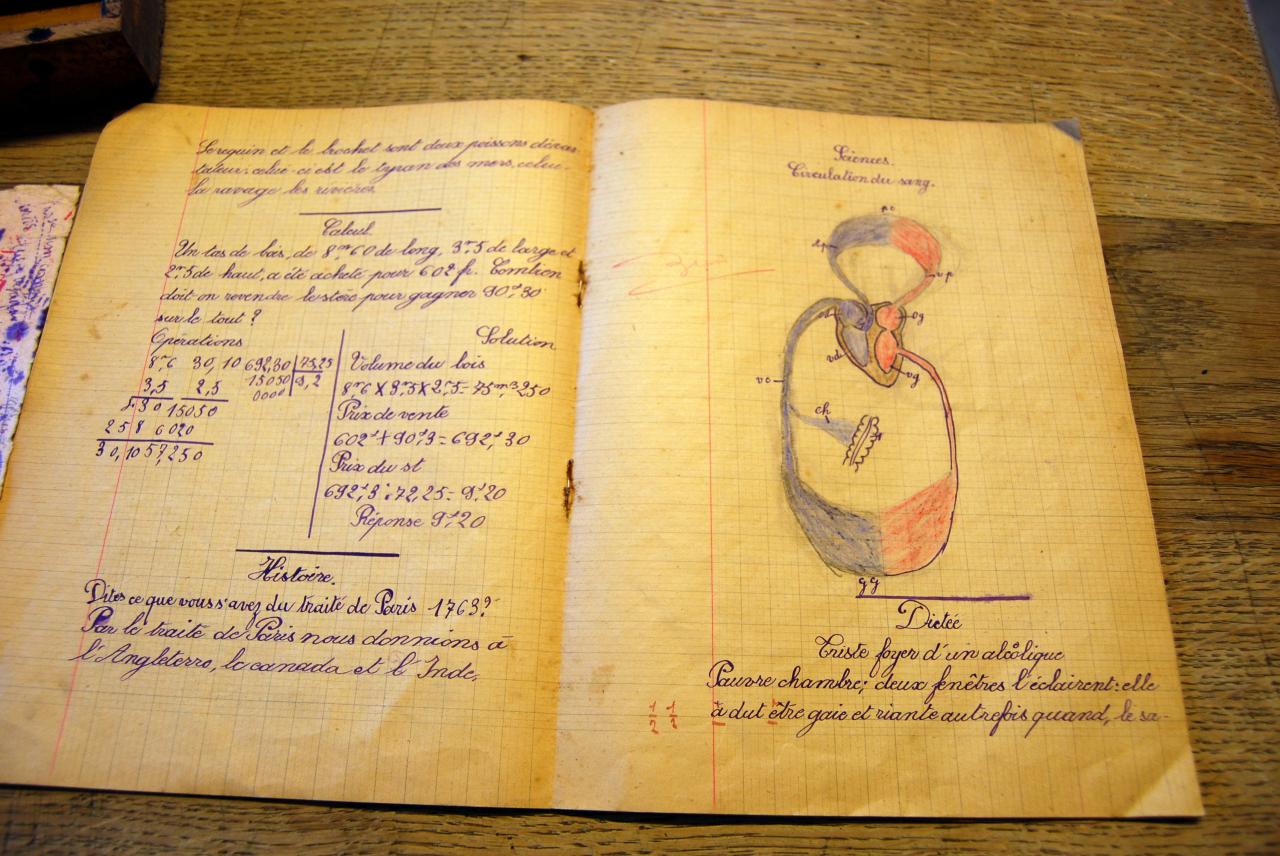 Le requin et le brochet sont deux poissons dévas-
tateur: celui-ci est le tyran des mers, celui-
la ravage les rivières
Calcul
Un tas de bois, de 8,m60 de long, 3m,5 de large et
2m,5 de haut, a été acheté pour 602 fr. Combien
doit-on revendre le stère pour gagner 90f,30
sur le tout ?
Opérations
Solution
8,6 30,10 692,30 | 75,25
3,5 2,5 15050 | 9,2
430 15050 0000
258 6020
30,10 57,250
Volume du bois
8m,6 X 3m,5 X 2m,5 = 75m3,250
Prix de vente
602f + 90f,3 = 692f,30
Prix du st
692f,3 : 72,25 = 9f,20
Réponse 9f,20
Histoire.
Dites ce que vous s'avez du traité de Paris 1763?
Par le traité de Paris nous donnions à
l'Angleterre, le canada et l'Inde,
Sciences.
Circulation du sang.
pc
ap
vp
od
og
vd
vg
vc
ch
gg
Dictée
Triste foyer d'un alcôlique
Pauvre chambre; deux fenêtres l'éclairent: elle
à dut être gaie et riante autrefois quand, le sa-